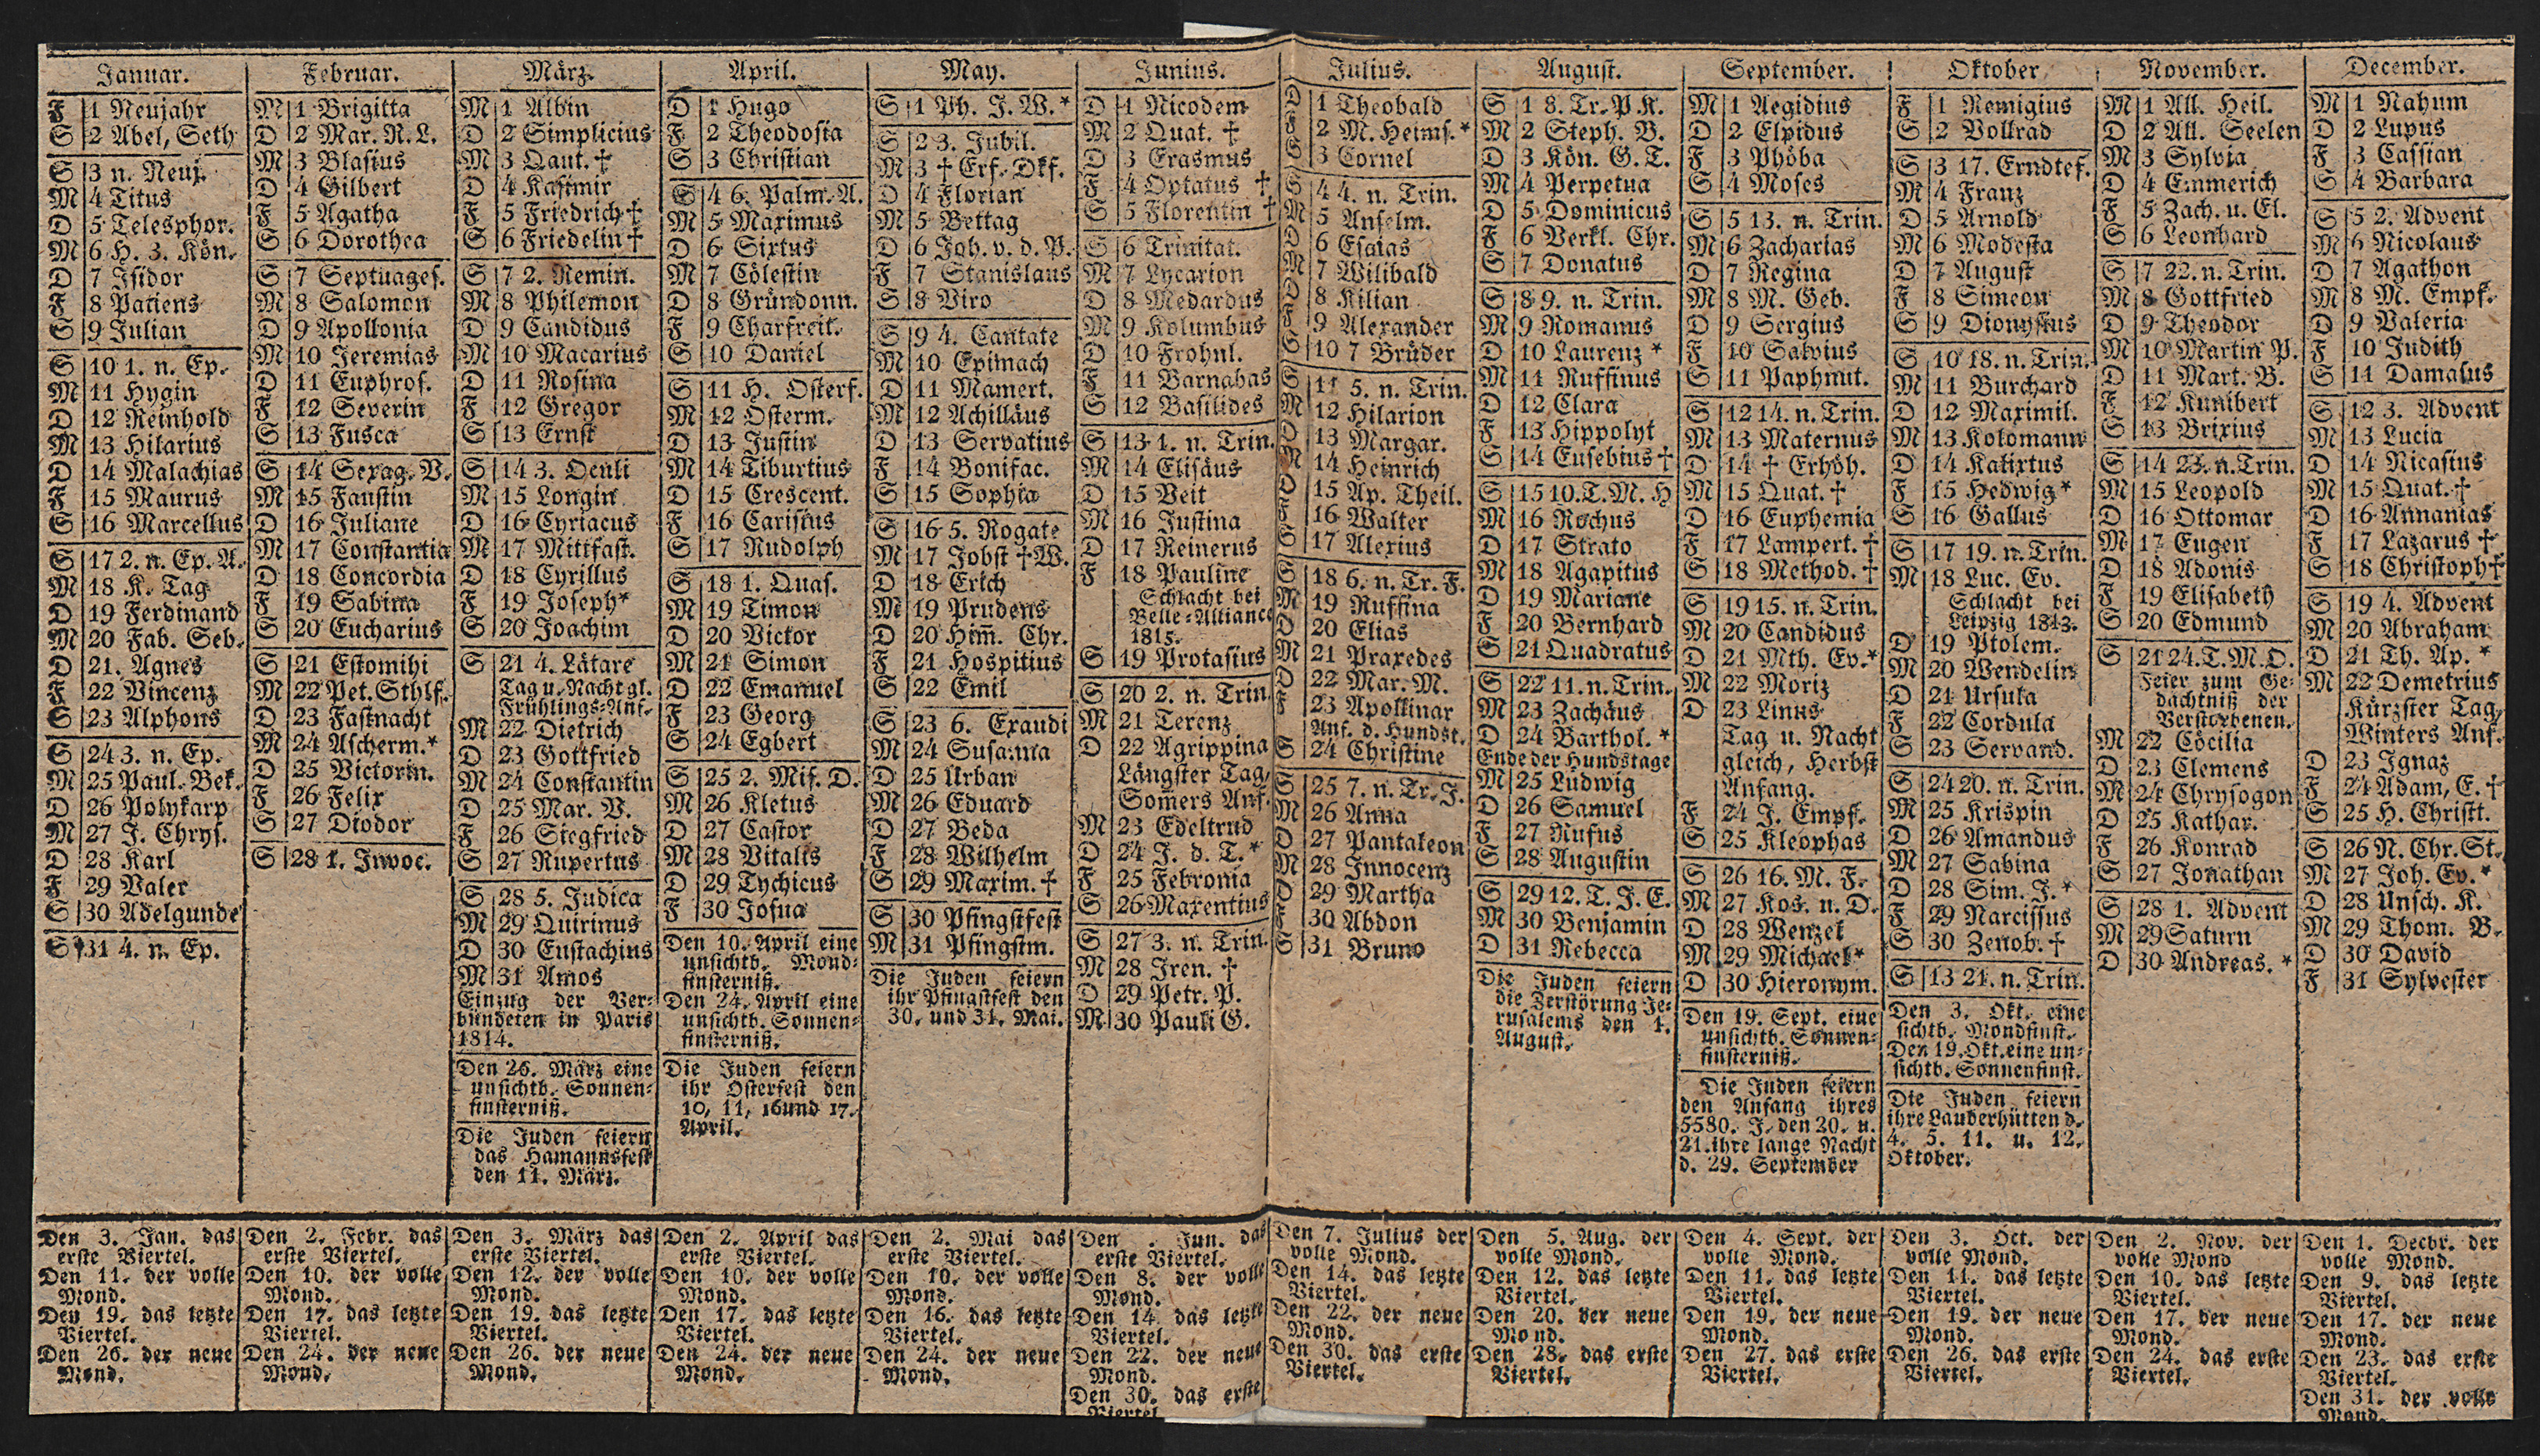 Januar.
F 1 Neujahr
S 2 Abel, Seth
S 3 n. Neuj.
M 4 Titus
D 5 Telesphor.
M 6 H. 3. Kön.
D 7 Isidor
F 8 Patiens
S 9 Julian
S 10 1. n. Ep.
M 11 Hygin
D 12 Reinhold
M 13 Hilarius
D 14 Malachias
F 15 Maurus
S 16 Marcellus
S 17 2. n. Ep. A.
M 18 K. Tag
D 19 Ferdinand
M 20 Fab. Seb.
D 21. Agnes
F 22 Vincenz
S 23 Alphons
S 24 3. n. Ep.
M 25 Paul. Bek.
D 26 Polykarp
M 27 J. Chrys.
D 28 Karl
F 29 Valer
S 30 Adelgunde
S 31 4. n. Ep.
Den 3. Jan. das
erste Viertel.
Den 11. der volle
Mond.
Den 19. das letzte
Viertel.
Den 26. der neue
Mond.
Februar.
M 1 Brigitta
D 2 Mar. R. L.
M 3 Blasius
D 4 Gilbert
F 5 Agatha
S 6 Dorothea
S 7 Septuages.
M 8 Salomon
D 9 Apollonia
M 10 Jeremias
D 11 Euphros.
F 12 Severin
S 13 Fusca
S 14 Sexag. V.
M 15 Faustin
D 16 Juliane
M 17 Constantia
D 18 Concordia
F 19 Sabina
S 20 Eucharius
S 21 Estomihi
M 22 Pet. Sthlf.
D 23 Fastnacht
M 24 Ascherm.*
D 25 Victorin.
F 26 Felix
S 27 Diodor
S 28 1. Invoc.
Den 2. Febr. das
erste Viertel.
Den 10. der volle
Mond.
Den 17. das letzte
Viertel.
Den 24. der neue
Mond.
März.
M 1 Albin
D 2 Simplicius
M 3 Qaut. †
D 4 Kasimir
F 5 Friedrich †
S 6 Friedelin †
S 7 2. Remin.
M 8 Philemon
D 9 Candidus
M 10 Macarius
D 11 Rosina
F 12 Gregor
S 13 Ernst
S 14 3. Oculi
M 15 Longin
D 16 Cyriacus
M 17 Mittfast.
D 18 Cyrillus
F 19 Joseph*
S 20 Joachim
S 21 4. Lätare
Tag u. Nachtgl.
Frühlings-Anf.
M 22 Dietrich
D 23 Gottfried
M 24 Constantin
D 25 Mar. V.
F 26 Siegfried
S 27 Rupertus
S 28 5. Judica
M 29 Quirinus
D 30 Eustachius
M 31 Amos
Einzug der Ver-
bündeten in Paris
1814.
Den 26. März eine
unsichtb. Sonnen-
finsterniß.
Die Juden feiern
das Hamannsfest
den 11. März.
Den 3. März das
erste Viertel.
Den 12. der volle
Mond.
Den 19. das letzte
Viertel.
Den 26. der neue
Mond.
April.
D 1 Hugo
F 2 Theodosia
S 3 Christian
S 4 6. Palm. A.
M 5 Maximus
D 6 Sixtus
M 7 Cölestin
D 8 Gründonn.
F 9 Charfreit.
S 10 Daniel
S 11 H. Osterf.
M 12 Osterm.
D 13 Justin
M 14 Tiburtius
D 15 Crescent.
F 16 Carisius
S 17 Rudolph
S 18 1. Quas.
M 19 Timon
D 20 Victor
M 21 Simon
D 22 Emanuel
F 23 Georg
S 24 Egbert
S 25 2. Mis. D.
M 26 Kletus
D 27 Castor
M 28 Vitalis
D 29 Tychicus
F 30 Josua
Den 10. April eine
unsichtb. Mond-
finsterniß.
Den 24. April eine
unsichtb. Sonnen-
finsterniß.
Die Juden feiern
ihr Osterfest den
10, 11, 16 und 17.
April.
Den 2. April das
erste Viertel.
Den 10. der volle
Mond.
Den 17. das letzte
Viertel.
Den 24. der neue
Mond.
May.
S 1 Ph. J. W.*
S 2 3. Jubil.
M 3 † Erf. Okf.
D 4 Florian
M 5 Bettag
D 6 Joh. v. d. P.
F 7 Stanislaus
S 8 Viro
S 9 4. Cantate
M 10 Epimach
D 11 Mamert.
M 12 Achilläus
D 13 Servatius
F 14 Bonifac.
S 15 Sophia
S 16 5. Rogate
M 17 Jobst † W.
D 18 Erich
M 19 Prudens
D 20 Him̄. Chr.
F 21 Hospitius
S 22 Emil
S 23 6. Exaudi
M 24 Susanna
D 25 Urban
M 26 Eduard
D 27 Beda
F 28 Wilhelm
S 29 Maxim. †
S 30 Pfingstfest
M 31 Pfingstm.
Die Juden feiern
ihr Pfingstfest den
30. und 31. Mai.
Den 2. Mai das
erste Viertel.
Den 10. der volle
Mond.
Den 16. das letzte
Viertel.
Den 24. der neue
Mond.
Junius.
D 1 Nicodem
M 2 Quat. †
D 3 Erasmus
F 4 Optatus †
S 5 Florentin †
S 6 Trinitat.
M 7 Lycarion
D 8 Medardus
M 9 Kolumbus
D 10 Frohnl.
F 11 Barnabas
S 12 Basilides
S 13 1. n. Trin.
M 14 Elisäus
D 15 Veit
M 16 Justina
D 17 Reinerus
F 18 Pauline
Schlacht bei
Belle-Alliance
1815.
S 19 Protasius
S 20 2. n. Trin.
M 21 Terenz
D 22 Agrippina
Längster Tag,
Som̄ers Anf.
M 23 Edeltrud
D 24 J. d. T.*
F 25 Febronia
S 26 Maxentius
S 27 3. n. Trin.
M 28 Iren. †
D 29 Petr. P.
M 30 Pauli G.
Den . Jun. das
erste Viertel.
Den 8. der volle
Mond.
Den 14. das letzte
Viertel.
Den 22. der neue
Mond.
Den 30. das erste
Viertel.
Julius.
D 1 Theobald
F 2 M. Heims.*
S 3 Cornel
S 4 4. n. Trin.
M 5 Anselm.
D 6 Esaias
M 7 Wilibald
D 8 Kilian
F 9 Alexander
S 10 7 Brüder
S 11 5. n. Trin.
M 12 Hilarion
D 13 Margar.
M 14 Heinrich
D 15 Ap. Theil.
F 16 Walter
S 17 Alexius
S 18 6. n. Tr. F.
M 19 Ruffina
D 20 Elias
M 21 Praxedes
D 22 Mar. M.
F 23 Apollinar
Anf. d. Hundst.
S 24 Christine
S 25 7. n. Tr. J.
M 26 Anna
D 27 Pantaleon
M 28 Innocenz
D 29 Martha
F 30 Abdon
S 31 Bruno
Den 7. Julius der
volle Mond.
Den 14. das letzte
Viertel.
Den 22. der neue
Mond.
Den 30. das erste
Viertel.
August.
S 1 8. Tr. P. K.
M 2 Steph. B.
D 3 Kön. G. T.
M 4 Perpetua
D 5 Dominicus
F 6 Verkl. Chr.
S 7 Donatus
S 8 9. n. Trin.
M 9 Romanus
D 10 Laurenz *
M 11 Ruffinus
D 12 Clara
F 13 Hippolyt
S 14 Eusebius †
S 15 10. T. M. H
M 16 Rochus
D 17 Strato
M 18 Agapitus
D 19 Mariane
F 20 Bernhard
S 21 Quadratus
S 22 11. n. Trin.
M 23 Zachäus
D 24 Barthol. *
Ende der Hundstage
M 25 Ludwig
D 26 Samuel
F 27 Rufus
S 28 Augustin
S 29 12. T. J. E.
M 30 Benjamin
D 31 Rebecca
Die Juden feiern
die Zerstörung Je-
rusalems den 1.
August.
Den 5. Aug. der
volle Mond.
Den 12. das letzte
Viertel.
Den 20. der neue
Mond.
Den 28. das erste
Viertel.
September.
M 1 Aegidius
D 2 Elpidus
F 3 Phöba
S 4 Moses
S 5 13. n. Trin.
M 6 Zacharias
D 7 Regina
M 8 M. Geb.
D 9 Sergius
F 10 Salvius
S 11 Paphnut.
S 12 14. n. Trin.
M 13 Maternus
D 14 † Erhöh.
M 15 Quat. †
D 16 Euphemia
F 17 Lampert. †
S 18 Method. †
S 19 15. n. Trin.
M 20 Candidus
D 21 Mth. Ev.*
M 22 Moriz
D 23 Linus
Tag u. Nacht
gleich, Herbst
Anfang.
F 24 J. Empf.
S 25 Kleophas
S 26 16. M. F.
M 27 Kos. u. D.
D 28 Wenzel
M 29 Michael*
D 30 Hieronym.
Den 19. Sept. eine
unsichtb. Sonnen-
finsterniß.
Die Juden feiern
den Anfang ihres
5580. J. den 20. u.
21. ihre lange Nacht
d. 29. September
Den 4. Sept. der
volle Mond.
Den 11. das letzte
Viertel.
Den 19. der neue
Mond.
Den 27. das erste
Viertel.
Oktober
F 1 Remigius
S 2 Vollrad
S 3 17. Erndtef.
M 4 Franz
D 5 Arnold
M 6 Modesta
D 7 August
F 8 Simeon
S 9 Dionysius
S 10 18. n. Trin.
M 11 Burchard
D 12 Maximil.
M 13 Kolomann
D 14 Kalixtus
F 15 Hedwig*
S 16 Gallus
S 17 19. n. Trin.
M 18 Luc. Ev.
Schlacht bei
Leipzig 1813.
D 19 Ptolem.
M 20 Wendelin
D 21 Ursula
F 22 Cordula
S 23 Servand.
S 24 20. n. Trin.
M 25 Krispin
D 26 Amandus
M 27 Sabina
D 28 Sim. J.*
F 29 Narcissus
S 30 Zenob. †
S 13 21. n. Trin.
Den 3. Okt. eine
sichtb. Mondfinst.
Den 19. Okt. eine un-
sichtb. Sonnenfinst.
Die Juden feiern
ihre Lauberhütten d.
4. 5. 11. u. 12.
Oktober.
Den 3. Oct. der
volle Mond.
Den 11. das letzte
Viertel.
Den 19. der neue
Mond.
Den 26. das erste
Viertel.
November.
M 1 All. Heil.
D 2 All. Seelen
M 3 Sylvia
D 4 Emmerich
F 5 Zach. u. El.
S 6 Leonhard
S 7 22. n. Trin.
M 8 Gottfried
D 9 Theodor
M 10 Martin P.
D 11 Mart. B.
F 12 Kunibert
S 13 Brixius
S 14 23. n. Trin.
M 15 Leopold
D 16 Ottomar
M 17 Eugen
D 18 Adonis
F 19 Elisabeth
S 20 Edmund
S 21 24. T. M. O.
Feier zum Ge-
dächtniß der
Verstorbenen.
M 22 Cöcilia
D 23 Clemens
M 24 Chrysogon
D 25 Kathar.
F 26 Konrad
S 27 Jonathan
S 28 1. Advent
M 29 Saturn
D 30 Andreas. *
Den 2. Nov. der
volle Mond
Den 10. das letzte
Viertel.
Den 17. der neue
Mond.
Den 24. das erste
Viertel.
December.
M 1 Nahum
D 2 Lupus
F 3 Cassian
S 4 Barbara
S 5 2. Advent
M 6 Nicolaus
D 7 Agathon
M 8 M. Empf.
D 9 Valeria
F 10 Judith
S 11 Damasus
S 12 3. Advent
M 13 Lucia
D 14 Nicasius
M 15 Quat. †
D 16 Annanias
F 17 Lazarus †
S 18 Christoph †
S 19 4. Advent
M 20 Abraham
D 21 Th. Ap. *
M 22 Demetrius
Kürzster Tag,
Winters Anf.
D 23 Ignaz
F 24 Adam, E. †
S 25 H. Christt.
S 26 N. Chr. St.
M 27 Joh. Ev.*
D 28 Unsch. K.
M 29 Thom. B.
D 30 David
F 31 Sylvester
Den 1. Decbr. der
volle Mond.
Den 9. das letzte
Viertel.
Den 17. der neue
Mond.
Den 23. das erste
Viertel.
Den 31. der volle
Mond.